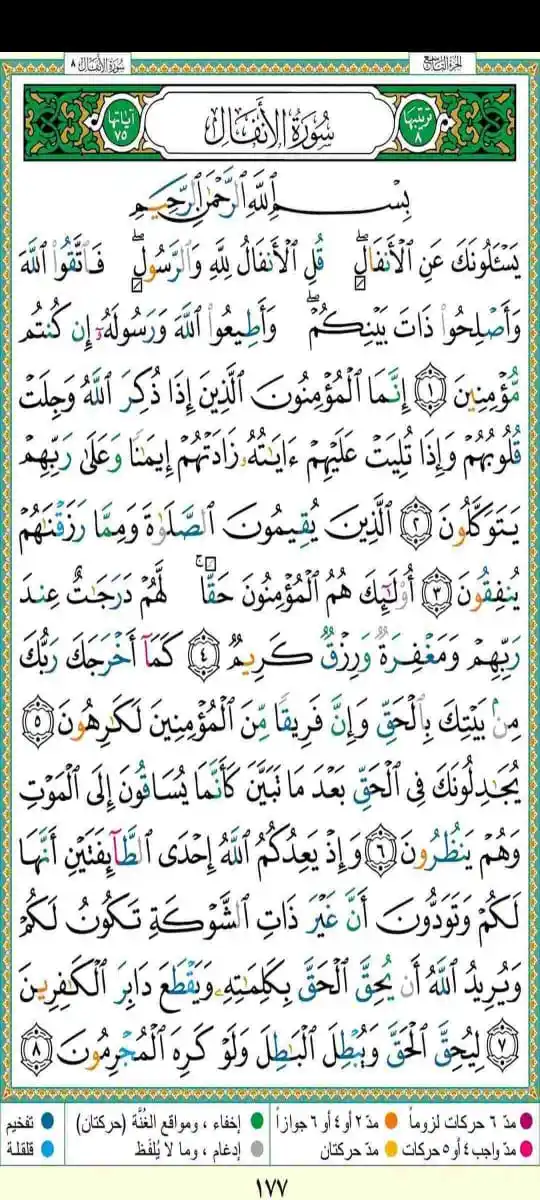 الجزء التاسع
سورة الأنفال ٨
ترتيبها ٨
سُورَةُ الأَنفَالِ
آياتها ٧٥
بِسْمِ ٱللَّهِ ٱلرَّحْمَٰنِ ٱلرَّحِيمِ
يَسْـَٔلُونَكَ عَنِ ٱلْأَنفَالِۖ قُلِ ٱلْأَنفَالُ لِلَّهِ وَٱلرَّسُولِۖ فَٱتَّقُوا۟ ٱللَّهَ
وَأَصْلِحُوا۟ ذَاتَ بَيْنِكُمْۖ وَأَطِيعُوا۟ ٱللَّهَ وَرَسُولَهُۥٓ إِن كُنتُم
مُّؤْمِنِينَ ١ إِنَّمَا ٱلْمُؤْمِنُونَ ٱلَّذِينَ إِذَا ذُكِرَ ٱللَّهُ وَجِلَتْ
قُلُوبُهُمْ وَإِذَا تُلِيَتْ عَلَيْهِمْ ءَايَـٰتُهُۥ زَادَتْهُمْ إِيمَـٰنًا وَعَلَىٰ رَبِّهِمْ
يَتَوَكَّلُونَ ٢ ٱلَّذِينَ يُقِيمُونَ ٱلصَّلَوٰةَ وَمِمَّا رَزَقْنَـٰهُمْ
يُنفِقُونَ ٣ أُو۟لَـٰٓئِكَ هُمُ ٱلْمُؤْمِنُونَ حَقًّاۚ لَّهُمْ دَرَجَـٰتٌ عِندَ
رَبِّهِمْ وَمَغْفِرَةٌ وَرِزْقٌ كَرِيمٌ ٤ كَمَآ أَخْرَجَكَ رَبُّكَ
مِنۢ بَيْتِكَ بِٱلْحَقِّ وَإِنَّ فَرِيقًا مِّنَ ٱلْمُؤْمِنِينَ لَكَـٰرِهُونَ ٥
يُجَـٰدِلُونَكَ فِى ٱلْحَقِّ بَعْدَ مَا تَبَيَّنَ كَأَنَّمَا يُسَاقُونَ إِلَى ٱلْمَوْتِ
وَهُمْ يَنظُرُونَ ٦ وَإِذْ يَعِدُكُمُ ٱللَّهُ إِحْدَى ٱلطَّآئِفَتَيْنِ أَنَّهَا
لَكُمْ وَتَوَدُّونَ أَنَّ غَيْرَ ذَاتِ ٱلشَّوْكَةِ تَكُونُ لَكُمْ
وَيُرِيدُ ٱللَّهُ أَن يُحِقَّ ٱلْحَقَّ بِكَلِمَـٰتِهِۦ وَيَقْطَعَ دَابِرَ ٱلْكَـٰفِرِينَ
٧ لِيُحِقَّ ٱلْحَقَّ وَيُبْطِلَ ٱلْبَـٰطِلَ وَلَوْ كَرِهَ ٱلْمُجْرِمُونَ ٨
مدّ ٦ حركات لزوماً
مدّ ٢ أو ٤ أو ٦ جوازاً
إخفاء ، ومواقع الغُنَّة (حركتان)
تفخيم
مدّ واجب ٤ أو ٥ حركات
مدّ حركتان
إدغام ، وما لا يُلفَظ
قلقلة
١٧٧